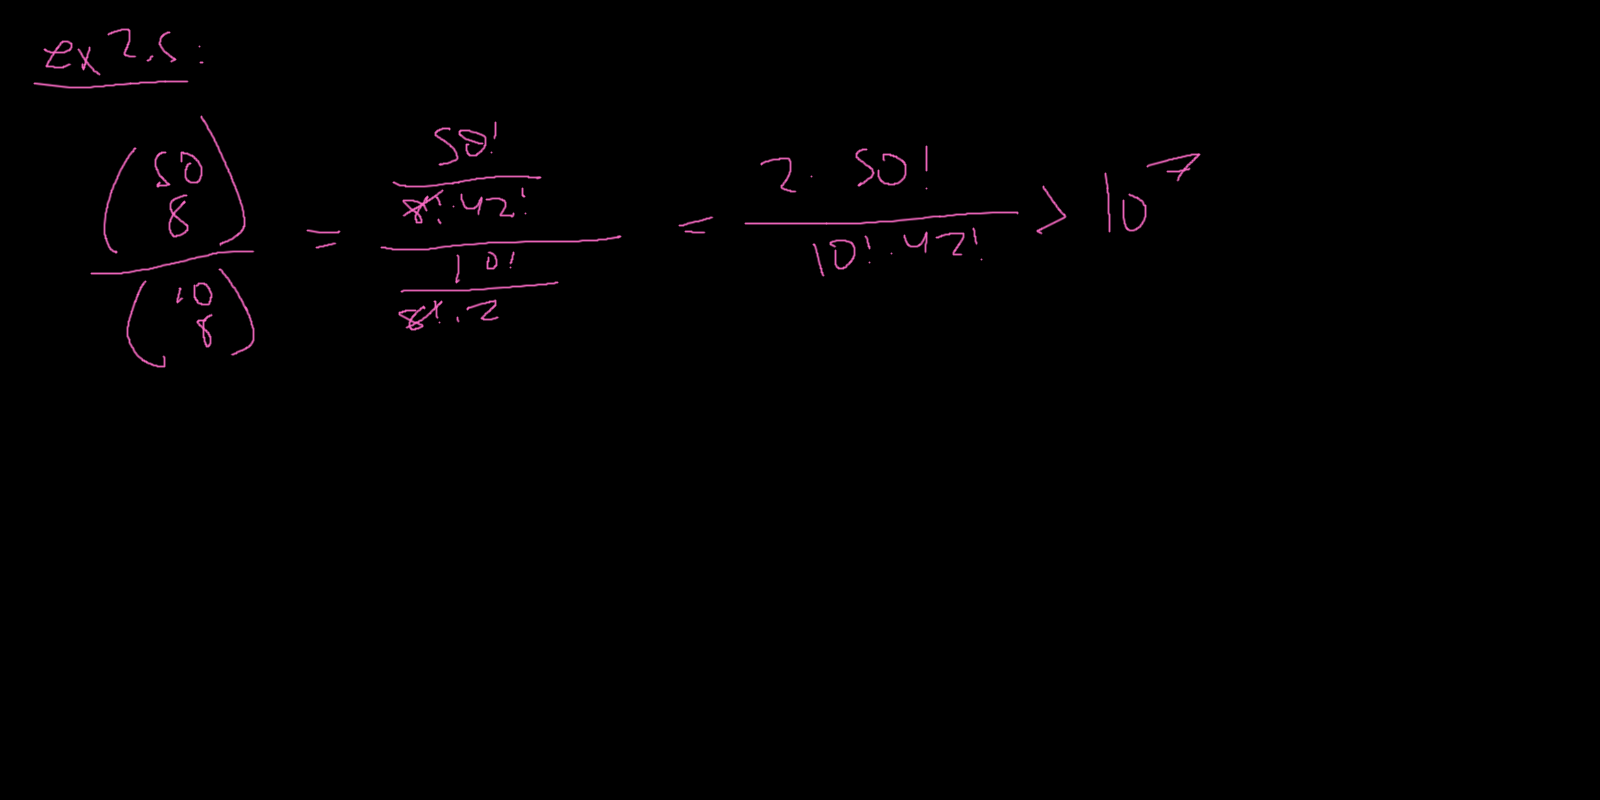 ex 2.5:
(50 8) / (10 8) = (50! / (8! · 42!)) / (10! / (8! · 2)) = (2 · 50!) / (10! · 42!) > 10^7